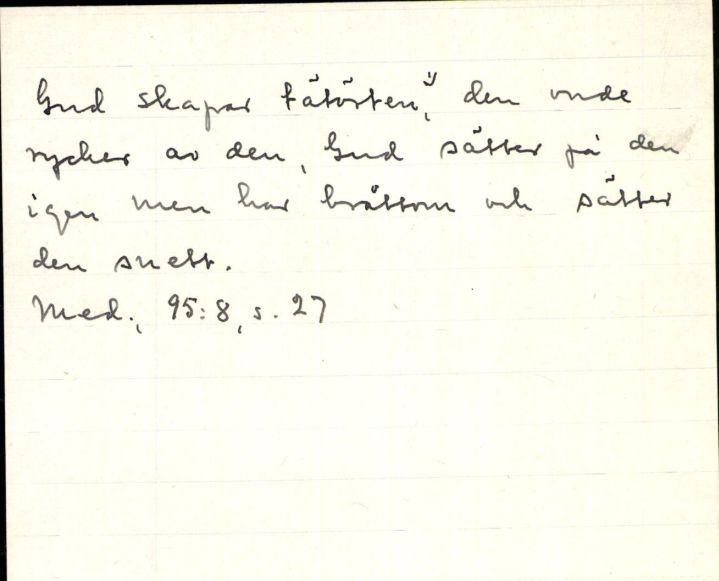 Gud skapar tätörten, den onde
rycker av den, Gud sätter på den
igen men har bråttom och sätter
den snett.
Med., 95:8, s. 27